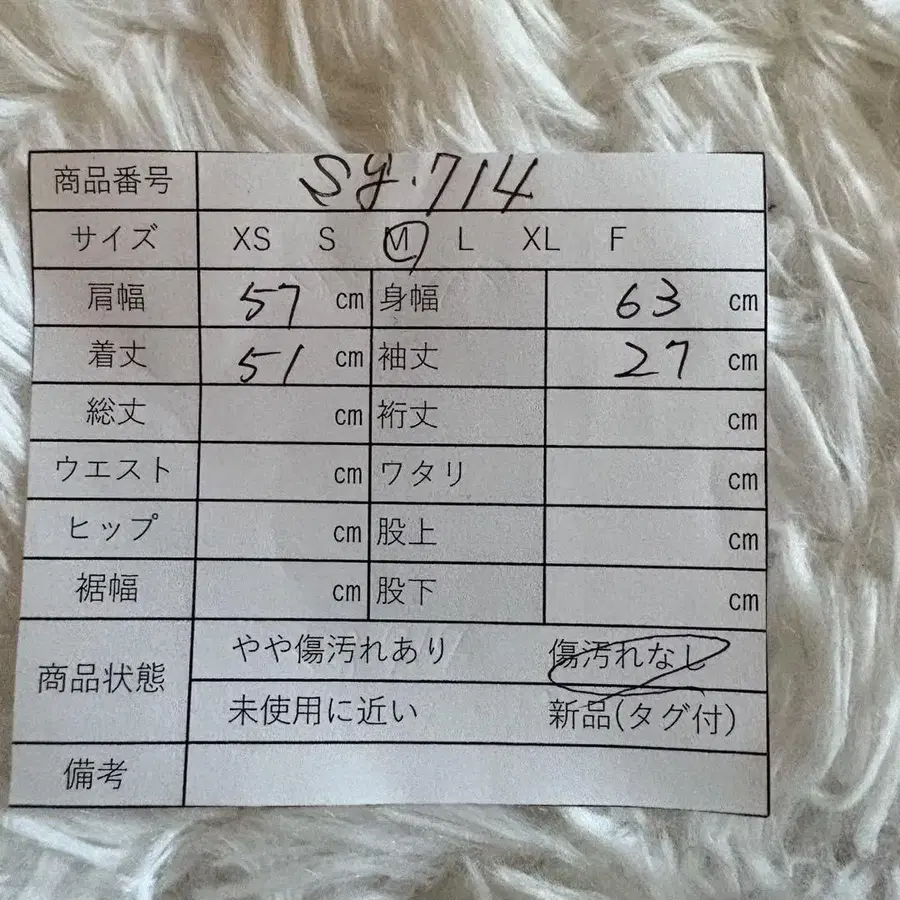 商品番号 SY.714
サイズ XS S M L XL F
肩幅 57 cm 身幅 63 cm
着丈 51 cm 袖丈 27 cm
総丈 cm 裄丈 cm
ウエスト cm ワタリ cm
ヒップ cm 股上 cm
裾幅 cm 股下 cm
商品状態 やや傷汚れあり 傷汚れなし
未使用に近い 新品(タグ付)
備考